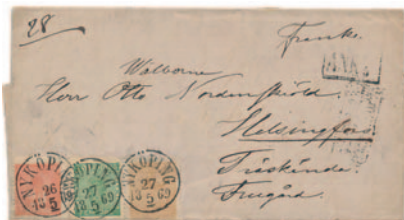 28
Franko.
Wälborne
Herr Otto Nordenskiöld.
Helsingfors
Träskända.
Frugård.
NYKÖPING
26
5
NYKÖPING
27
18 69
5
NYKÖPING
27
18 69
5